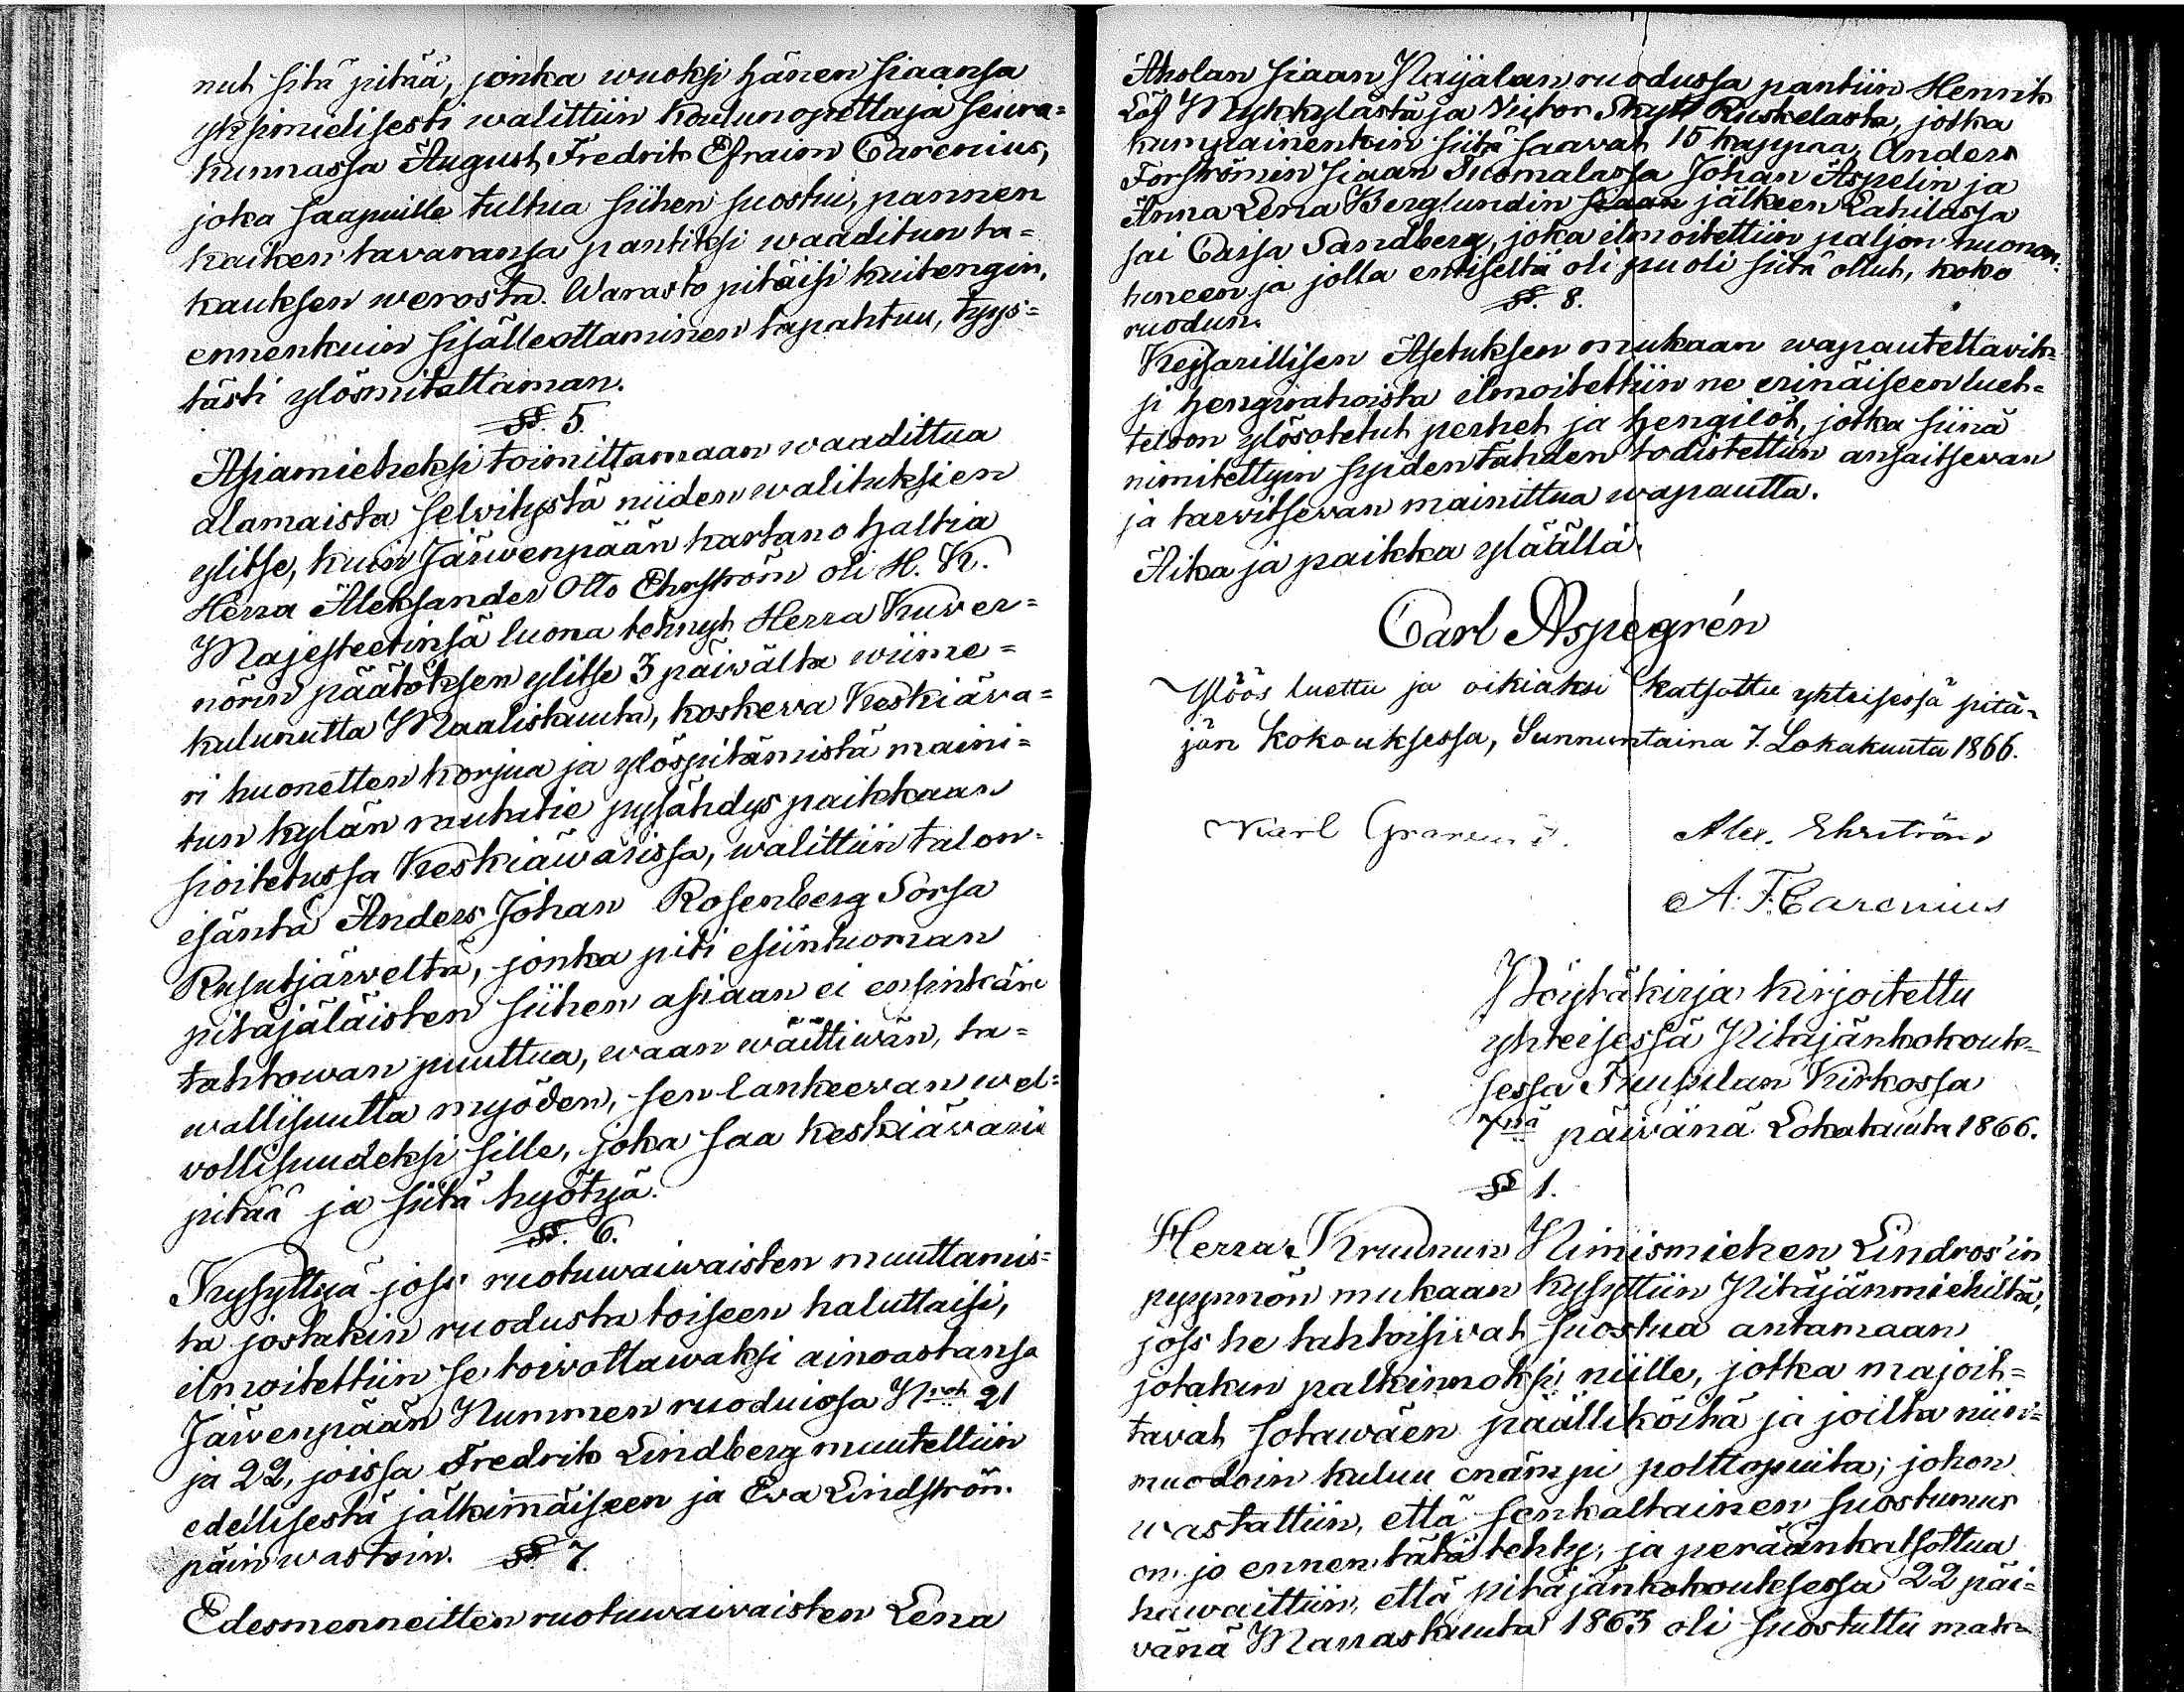 nut sitä pitää, jonka wuoksi hänen siaansa
yksimielisesti walittiin koulunopettaja seura=
kunnassa August Fredrik Efraim Carenius,
joka saapuille tultua siihen suostui, pannen
kaiken tavaransa pantiksi waaditun ta=
kauksen werosta. Warasto pitäisi kuitengin,
ennenkuin sisälleottaminen tapahtuu, tyys=
tästi ylösmitattaman.
§§. 5.
Asiamieheksi toimittamaan waadittua
alamaista selvitystä niiden walituksien
ylitse, kuin Järwenpään kartano haltia
Herra Aleksander Otto Ehrström oli H. K.
Majesteetinsä luona tehnyt Herra Kuver=
nörin päätöksen ylitse 3 päiwältä wiime=
kulunutta Maaliskuuta, koskeva Keskiäva=
ri huonetten korjua ja ylöspitämistä maini=
tun kylän rautatie pysähdys paikkaan
sioitetussa Keskiäwärissa, walittiin talon=
isäntä Anders Johan Rosenberg Sorsa
Rusutjärveltä, jonka piti esiintuoman
pitäjäläisten siihen asiaan ei ensinkän
tahtowan puuttua, waan wäittiwän, ta=
wallisuutta myöden, sen lankeevan wel=
vollisuudeksi sille, joka saa keskiävaria
pitää ja siitä hyötyä.
§§. 6.
Kysyttyä joss ruotuwaiwaisten muuttamis=
ta jostakin ruodusta toiseen haluttaisi,
ilmoitettiin se toivottawaksi ainoastansa
Järvenpään Nummen ruoduissa N:rot 21
ja 22, joissa Fredrik Lindberg muutettiin
edellisestä jälkimmäiseen ja Eva Lindström
päin wastoin. §§ 7.
Edesmenneitten ruotuwaivaisten Lena
Aholan siaan Naijalan ruodussa pantiin Henrik
Löf Myhkylästä ja Viktor Skyt Ruskelasta, jotka
kumpainenkin siitä saavat 15 kappaa, Anders
Forströmin siaan Tuomalassa Johan Aspelin ja
Anna Lena Berglundin siaan jälkeen Lahilassa
sai Caisa Sandberg, joka ilmoitettiin paljon huonon=
tuneen ja jolla entiseltä oli puoli siitä ollut, koko
ruodun. §§. 8.
Keisarillisen Asetuksen mukaan wapautettavik=
si hengirahoista ilmoitettiin ne erinäiseen luet=
teloon ylösotetut perhet ja hengilöt, jotka siinä
nimitettyin syiden tähden todistettiin ansaitsevan
ja tarvitsevan mainittua wapautta.
Aika ja paikka yläällä.
Carl Aspegrén
Ylöös luettu ja oikiaksi katsottu yhteisessä pitä=
jän kokouksessa, Sunnuntaina 7. Lokakuuta 1866.
Karl
Alex. Ehrström
A. F. Carenius
Pöytäkirja kirjoitettu
yhteisessä Pitäjänkokouk=
sessa Tuusulan Kirkossa
7:nä päiwänä Lokakuuta 1866.
§§ 1.
Herra Kruunun Nimismiehen Lindros'in
pyynnön mukaan kysyttiin Pitäjänmiehiltä,
joss he tahtoisivat suostua antamaan
jotakin palkinnoksi niille, jotka majoit=
tavat sotawäen päälliköitä ja joilta niin=
muodoin kuluu enämpi polttopuita; johon
wastattiin, että senkaltainen suostumus
on jo ennen tätä tehty; ja peräänkatsottua
hawaittiin, että pitäjänkokouksessa 22 päi=
vänä Marraskuuta 1863 oli suostuttu mak=